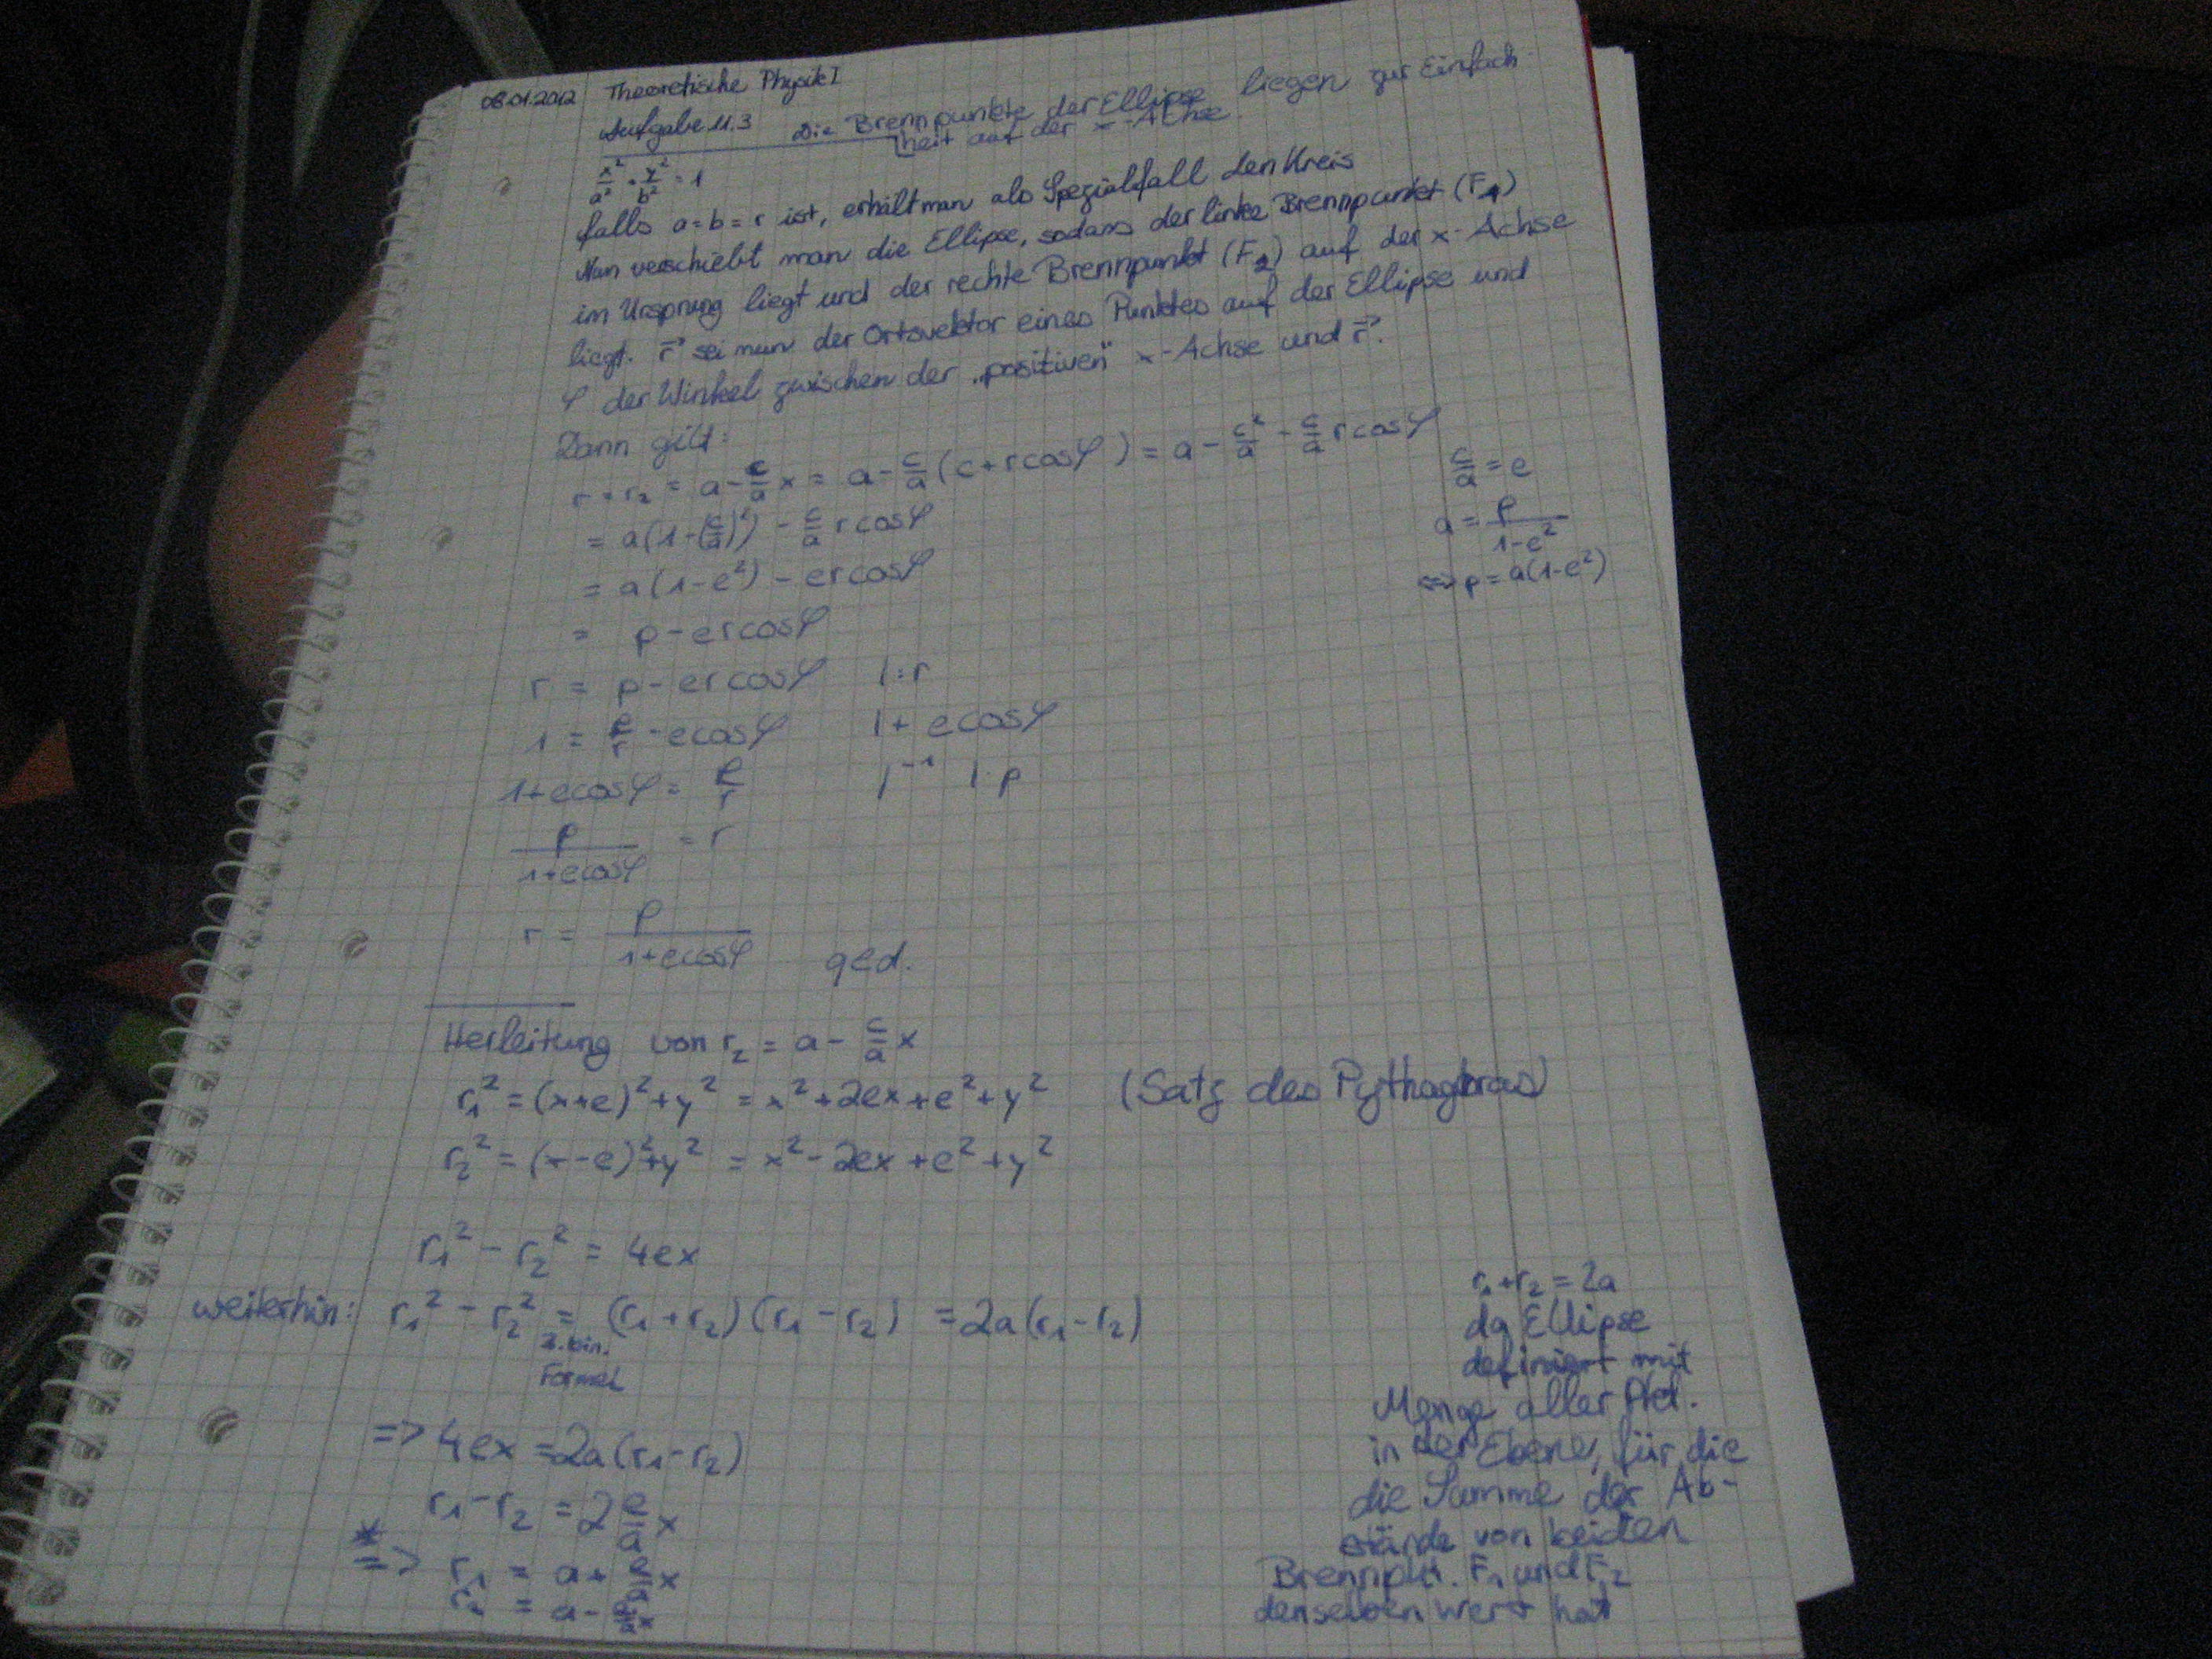 08.01.2012 Theoretische Physik I
Aufgabe 11.3 Die Brennpunkte der Ellipse liegen zur Einfach-
heit auf der x-Achse.
x²/a² + y²/b² = 1
falls a=b=r ist, erhält man als Spezialfall den Kreis
Nun verschiebt man die Ellipse, sodass der linke Brennpunkt (F₁)
im Ursprung liegt und der rechte Brennpunkt (F₂) auf der x-Achse
liegt. r⃗ sei nun der Ortsvektor eines Punktes auf der Ellipse und
φ der Winkel zwischen der „positiven" x-Achse und r⃗.
Dann gilt:
r = r₂ = a - c/a x = a - c/a (c + r cosφ) = a - c²/a - c/a r cosφ
c/a = e
= a(1-(c/a)²) - c/a r cosφ
a = p/(1-e²)
= a(1-e²) - er cosφ
<=> p = a(1-e²)
= p - er cosφ
r = p - er cosφ |:r
1 = p/r - e cosφ |+ e cosφ
1+e cosφ = p/r |⁻¹ |·p
p/(1+e cosφ) = r
r = p/(1+e cosφ) qed.
Herleitung von r₂ = a - c/a x
r₁² = (x+e)²+y² = x²+2ex+e²+y² (Satz des Pythagoras)
r₂² = (x-e)²+y² = x²-2ex+e²+y²
r₁² - r₂² = 4ex
weiterhin: r₁² - r₂² = (r₁+r₂)(r₁-r₂) = 2a(r₁-r₂)
3. bin.
Formel
=> 4ex = 2a(r₁-r₂)
r₁-r₂ = 2 e/a x
*
=> r₁ = a + e/a x
r₂ = a - e/a x
r₁+r₂ = 2a
da Ellipse
definiert mit
Menge aller Pkt.
in der Ebene, für die
die Summe der Ab-
stände von beiden
Brennpkt. F₁ und F₂
denselben Wert hat